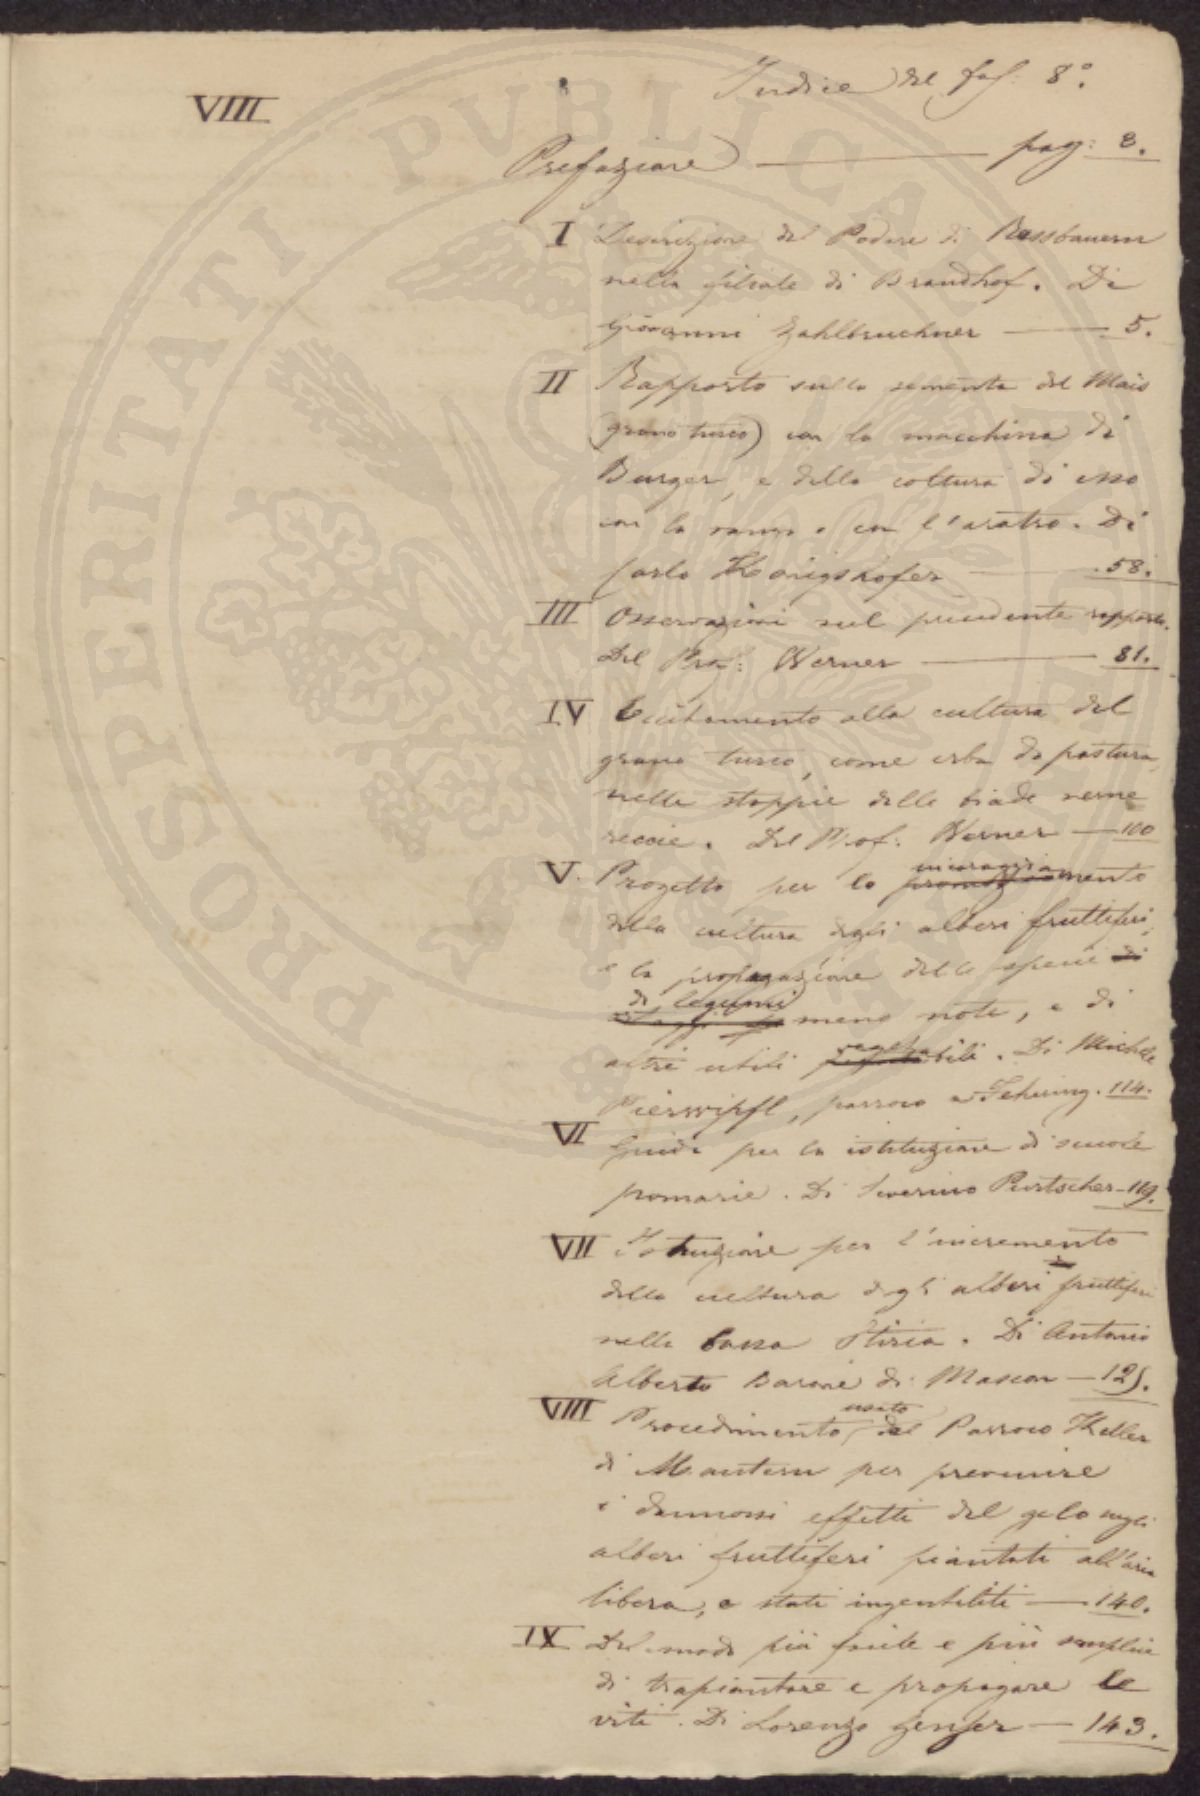 VIII
Indice del fas: 8°.
Prefazione — pag: 3.
I Descrizione del Podere di Rossbauern
nella filiale di Brandhof. Di
Giovanni Zahlbruckner — 5.
II Rapporto sulla sementa del Mais
(grano turco) con la macchina di
Burger, e della coltura di esso
con la zappa e con l'aratro. Di
Carlo Königshofer — 58.
III Osservazioni sul precedente rapporto.
Del Prof: Werner — 81.
IV Eccitamento alla cultura del
grano turco, come erba da pastura,
nelle stoppie delle biade verne
reccie. Del Prof: Werner — 100
V. Progetto per lo incoraggiamento
della cultura degli alberi fruttiferi,
e la propagazione delle specie di
di legumi meno note, e di
altri utili vegetabili. Di Michele
Pierwipfl, parroco a Fehring. 114.
VII Guida per la istituzione di scuole
pomarie. Di Severino Purtscher — 119.
VII Istruzione per l'incremento
della cultura degli alberi fruttiferi
nella bassa Stiria. Di Antonio
Alberto Barone di Mascon — 125.
VIII Procedimento usato del Parroco Keller
di Mautern per prevenire
i dannosi effetti del gelo sugli
alberi fruttiferi piantati all'aria
libera, e stati ingentiliti — 140.
IX Del modo più facile e più semplice
di trapiantare e propagare le
viti. Di Lorenzo Genser — 143.
PROSPERITATI PVBLICAE